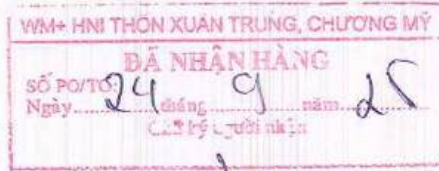 WM+ HNI THÔN XUÂN TRUNG, CHƯƠNG MỸ
ĐÃ NHẬN HÀNG
SỐ PO/TO:
Ngày 24 tháng 9 năm 25
Chữ ký người nhận